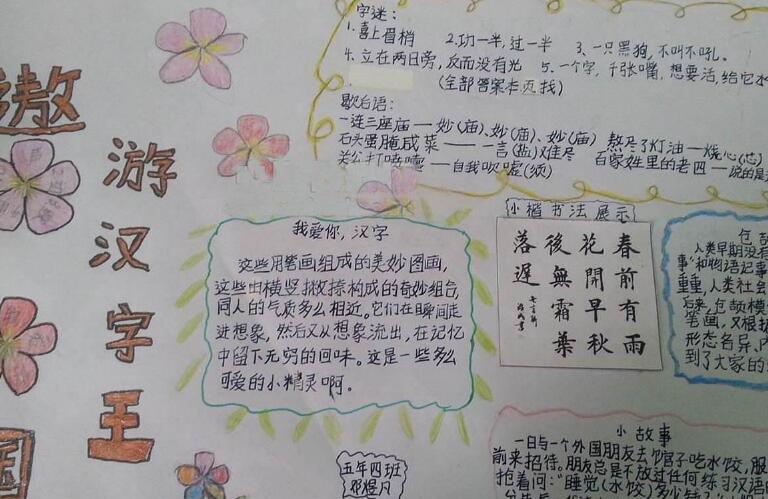 遨
游
汉
字
王
国
字迷：
1.喜上眉梢 2.功一半，过一半 3、一只黑狗，不叫不吼。
4.立在两日旁，反而没有光 5、一个字，千张嘴，想要活，给它水
（全部答案本页找）
歇后语：
一连三座庙——妙(庙)、妙(庙)、妙(庙) 熬尽了灯油—烧心(芯)
石头蛋腌咸菜——一言(盐)难尽 百家姓里的老四—说的是
关公打喷嚏——自我吹嘘(须)
我爱你，汉字
这些用笔画组成的美妙图画，
这些由横竖撇捺构成的奇妙组合，
同人的气质多么相近。它们在瞬间走
进想象，然后又从想象流出，在记忆
中留下无穷的回味。这是一些多么
可爱的小精灵啊。
小楷书法展示
春前有雨
花開早秋
後無霜葉
落遲
包颉
人类早期没有
事"和物语记事
重重，人类社会
后来，仓颉模
笔画，又根据
形态各异、内
到了大家的
小故事
一日与一个外国朋友去饭馆子吃水饺，服
前来招待。朋友总是不放过任何练习汉语的
抢着问："睡觉(水饺)多少钱
五年四班
邓煜凡